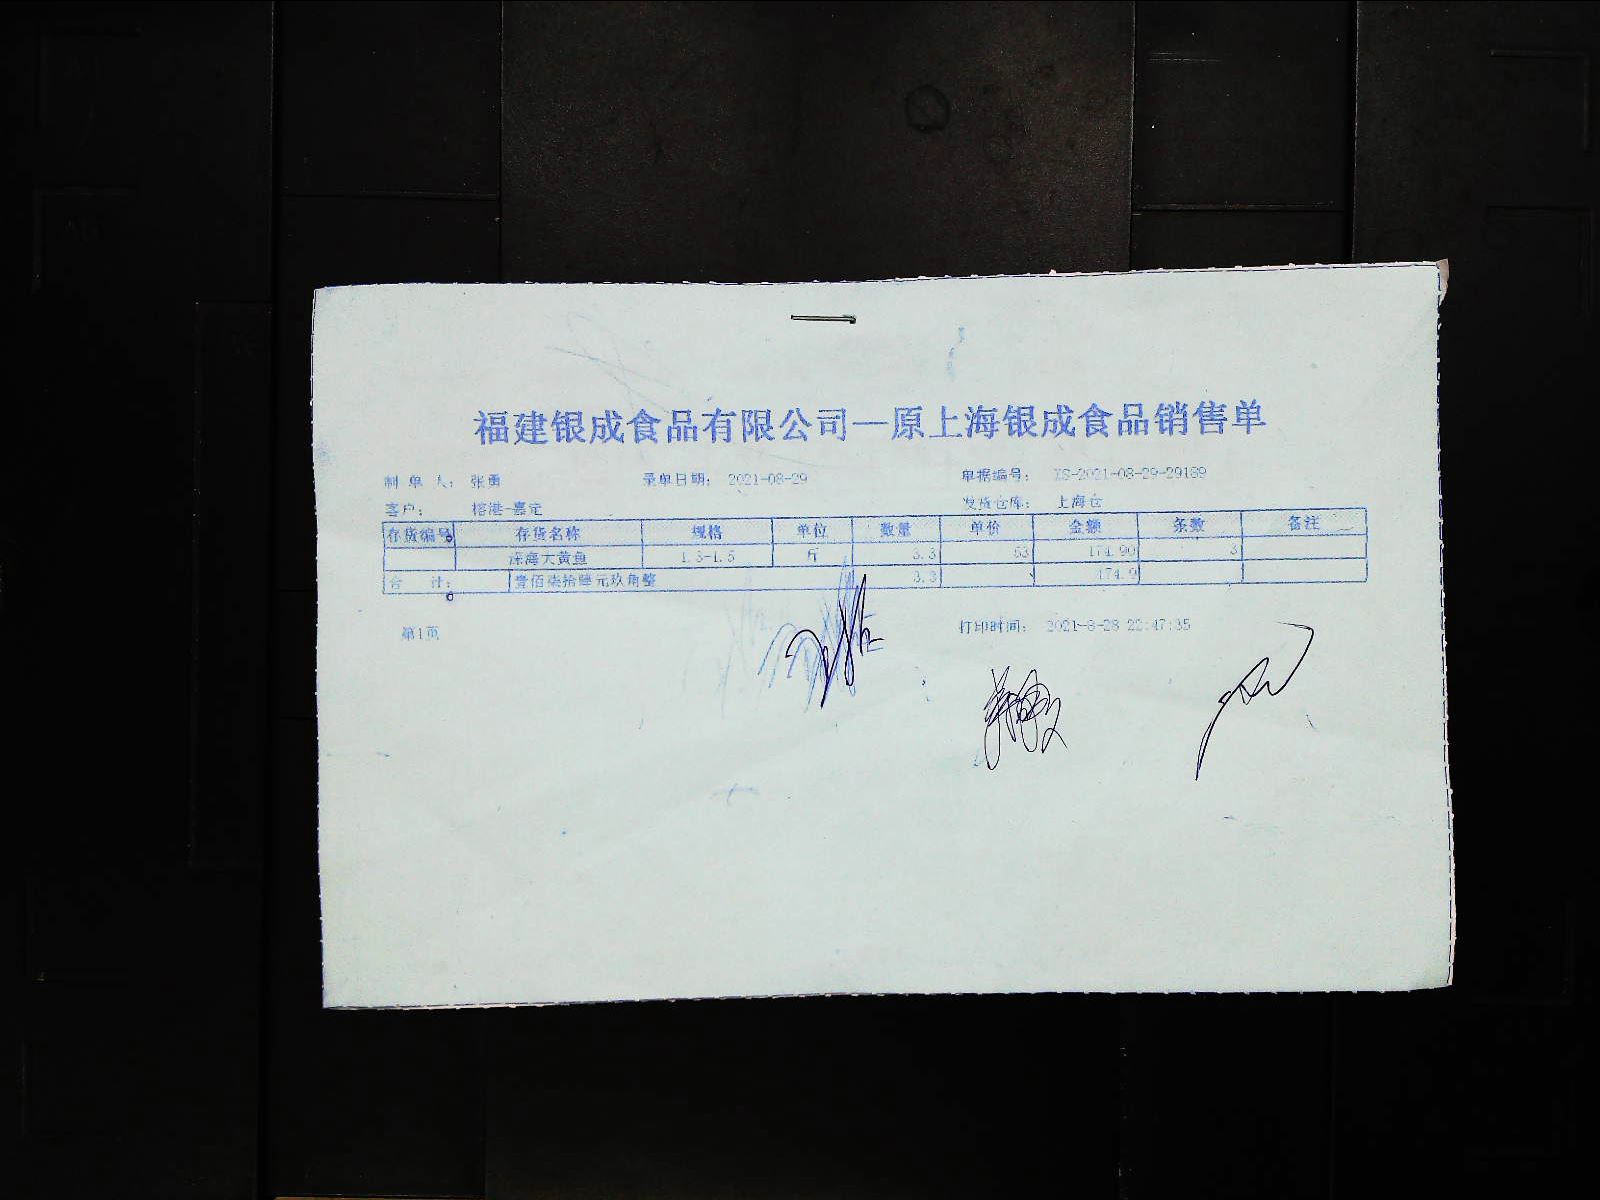 福建银成食品有限公司—原上海银成食品销售单
制 单 人: 张勇 录单日期: 2021-08-29 单据编号: XS-2021-08-29-29189
客户: 榕港-嘉定 发货仓库: 上海仓
存货编号 存货名称 规格 单位 数量 单价 金额 条数 备注
深海大黄鱼 1.3-1.5 斤 3.3 53 174.90 3
合 计: 壹佰柒拾肆元玖角整 3.3 174.9
第1页 打印时间: 2021-8-28 22:47:35